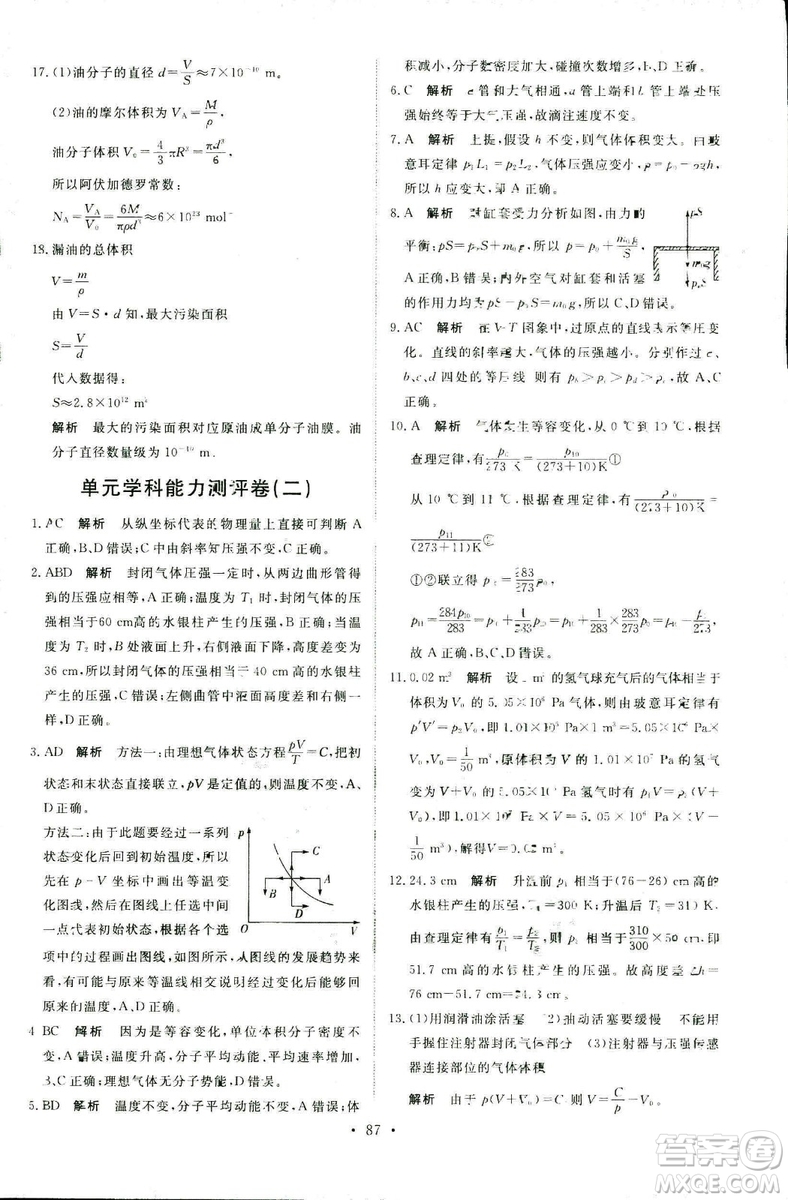 17. (1)油分子的直径 d=V/S≈7×10⁻¹⁰ m。
(2)油的摩尔体积为 V_A=M/ρ
油分子体积 V₀=4/3 πR³=πd³/6
所以阿伏加德罗常数:
N_A=V_A/V₀=6M/πρd³≈6×10²³ mol⁻
18. 漏油的总体积
V=m/ρ
由 V=S·d 知,最大污染面积
S=V/d
代入数据得:
S≈2.8×10¹² m²
解析 最大的污染面积对应原油成单分子油膜。油
分子直径数量级为 10⁻¹⁰ m。
单元学科能力测评卷(二)
1. AC 解析 从纵坐标代表的物理量上直接可判断 A
正确,B、D 错误;C 中由斜率知压强不变,C 正确。
2. ABD 解析 封闭气体压强一定时,两边曲形管得
到的压强不变,A 正确;温度为 T₁ 时,封闭气体压
强相当于60 cm高的水银柱产生的压强;当温
度为 T₂ 时,B 处液面上升,右侧液面下降,高度差变为
36 cm,所以封闭气体压强等于 40 cm 高的水银柱
产生的压强,C 错误;左侧细管液面高度差和右侧一
样,D 正确。
3. AD 解析 方法一:由理想气体状态方程pV/T=C,把初
状态和末状态直接联立,pV 是定值的,不变,A、
D 正确。
方法二:由于此题要经过一系列
状态变化后回到初始温度,所以
在 p-V 坐标中作出四个选项变
化图线,先在图线上任选中间
一点代表初始状态,根据各个选
项中的过程画出图线,从图线的发展趋势来
看,有可能与原来等温线相交说明经过变化后可能回
到原来的温度,A、D 正确。
p
C
B
A
D
O
V
4 BC 解析 因为是等容变化,单位体积分子密度不
变,A 错误;温度升高,分子平均动能、平均速率增大,
B、C 正确;理想气体无分子势能,D 错误。
5. BD 解析 温度不变,分子平均动能不变,A 错误;体
积减小,分子数密度增加,碰撞次数增加,D 正确。
6. C 解析 c 管和大气相通,a 管上端和 b 管上端处压
强始终等于大气压强,故滴注速度不变。
7. A 解析 上提,假设 h 不变,则气体体积变大,由玻
意耳定律 p₁L₁=p₂L₂,气体压强应变小,p=p₀-
ρgh,所以 h 增大,即 A 正确。
8. A 解析 对缸套受力分析如图,由力的
平衡:pS=p₀S+m₀g,所以 p=p₀+m₀g/S
A 正确、B 错误;内外空气对缸套和活塞
的作用力为 pS-p₀S=m₀g,所以C、D错误。
p₀S
m₀g
pS
9. AC 解析 在V-T 图象中,过原点的直线表示等压变
化。直线的斜率越大,气体的压强越小。分别作过
b、c、d 四处的等压线
A、C
正确。
10. A 解析 气体发生等容变化,从 0 ℃到 10 ℃,根据
查理定律,
p₀/273 K=p₁₀/(273+10)K①
从 10 ℃到 11 ℃,根据查理定律,p₁₀/(273+10)K=
p₁₁/(273+11)K②
①②联立得
A 正确,B、C、D 错误。
11. 0.02 m³ 解析 设
的氢气球充气后的气
体相当于 V₀ 的 5.05×10⁶ Pa气体,则由玻意耳定律
p′V′=p₂V₀,即 1.01×10⁵ Pa×1 m³=5.05×10⁶
Pa×V₀,得V₀=1/50 m³,原体积为 V 的 1.01×10⁷ Pa 的氢气
变为 V+V₀ 的 5.05×10⁶ Pa氢气时有 p₁V=p₂(V+
V₀),即 1.01×10⁷ Pa×V=5.05×10⁶ Pa×(V+
1/50 m³)解得V=0.02 m³。
12. 24.3 cm 解析 升温前 p₁ 相当于(76-26)cm高的
水银柱产生的压强,T₁=300 K;升温后 T₂=310 K,
由查理定律 p₁/T₁=p₂/T₂,所以 p₂ 相当于 310/300×50 cm=
51.7 cm 高的水银柱产生的压强。故高度差应为
76 cm-51.7 cm=24.3 cm。
13. (1)用润滑油涂活塞 (2)抽动活塞要缓慢 不能用
手握住注射器封闭气体部分 (3)注射器与压强传感
器连接部位的气体体积
解析 由于 p(V+V₀)=C,则 V=C/p-V₀。
87
答案圈
MXQE.COM